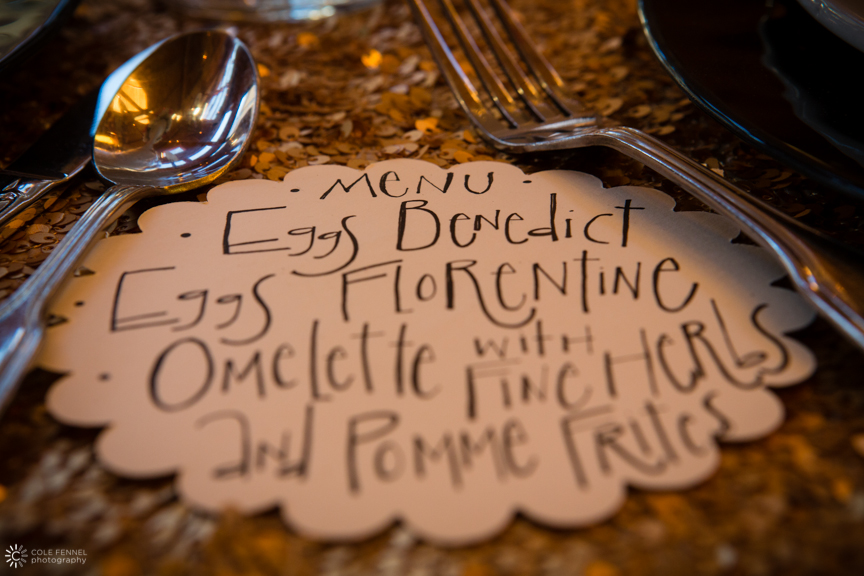 · MENU ·
· Eggs Benedict
· Eggs Florentine
· Omelette with Fine Herbs
and Pomme Frites
COLE FENNEL
photography